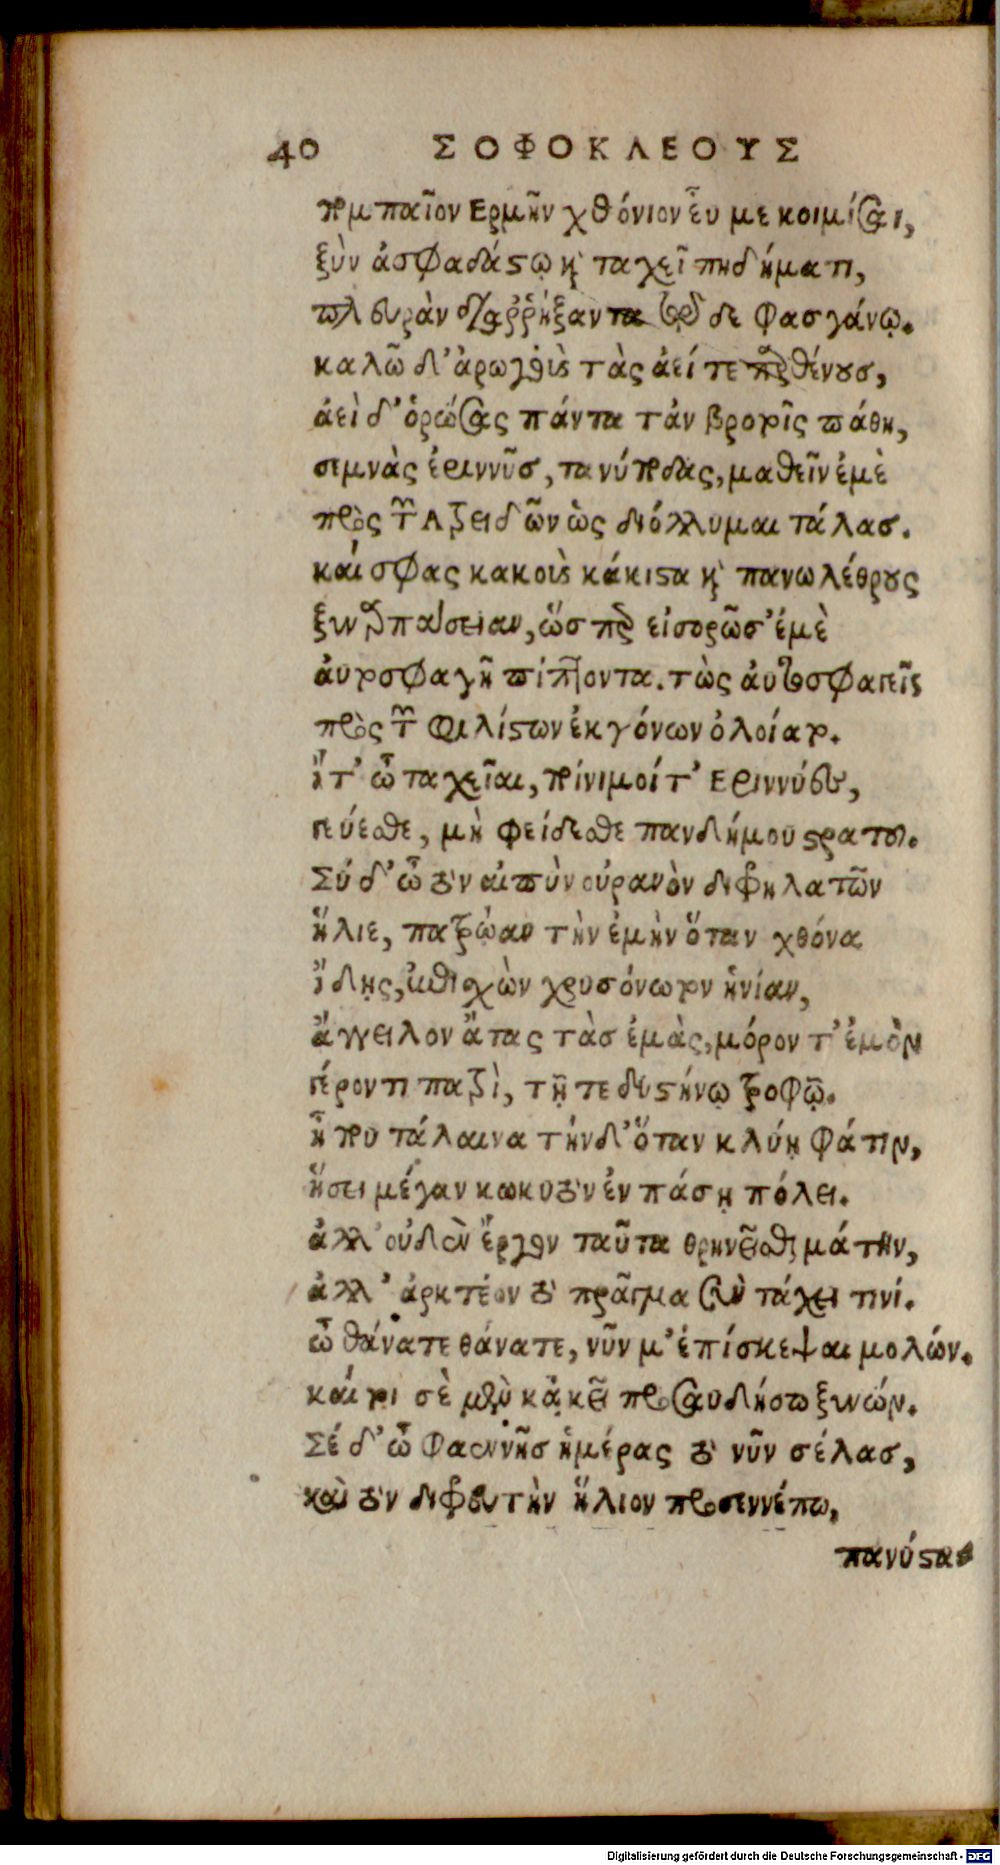 40 ΣΟΦΟΚΛΕΟΥΣ
πομπαῖον Ερμῆν χθόνιον εὖ με κοιμίσαι,
ξὺν ἀσφαδάστῳ καὶ ταχεῖ πηδήματι,
πλευρὰν διαρρήξαντα τῷδε φασγάνῳ.
καλῶ δ' ἀρωγοὺς τὰς ἀεί τε παρθένους,
ἀεὶ δ' ὁρώσας πάντα τἀν βροτοῖς πάθη,
σεμνὰς ἐριννῦς, τανύποδας, μαθεῖν ἐμὲ
πρὸς τῶν Ατρειδῶν ὡς διόλλυμαι τάλας.
καί σφας κακοὺς κάκιστα καὶ πανωλέθρους
ξυναρπάσειαν, ὥσπερ εἰσορῶσ' ἐμὲ
αὐτοσφαγῆ πίπτοντα. τὼς αὐτοσφαγεῖς
πρὸς τῶν φιλίστων ἐκγόνων ὀλοίατο.
ἴτ' ὦ ταχεῖαι, ποίνιμοί τ' Εριννύες,
γεύεσθε, μὴ φείδεσθε πανδήμου στρατοῦ.
Σύ δ' ὦ τὸν αἰπὺν οὐρανὸν διφρηλατῶν
ἥλιε, πατρῴαν τὴν ἐμὴν ὅταν χθόνα
ἴδῃς, ἐπισχὼν χρυσόνωτον ἡνίαν,
ἄγγειλον ἄτας τὰς ἐμὰς, μόρον τ' ἐμὸν
γέροντι πατρὶ, τῇ τε δυστήνῳ τροφῷ.
ἦ που τάλαινα τήνδ' ὅταν κλύῃ φάτιν,
ἥσει μέγαν κωκυτὸν ἐν πάσῃ πόλει.
ἀλλ' οὐδὲν ἔργον ταῦτα θρηνεῖσθαι μάτην,
ἀλλ' ἀρκτέον τὸ πρᾶγμα σὺν τάχει τινί.
ὦ θάνατε θάνατε, νῦν μ' ἐπίσκεψαι μολών.
καί τοι σὲ μὲν κἀκεῖ προσαυδήσω ξυνών.
Σέ δ' ὦ φαεννῆς ἡμέρας τὸ νῦν σέλας,
καὶ τὸν διφρευτὴν ἥλιον προσεννέπω,
πανύστα-
Digitalisierung gefördert durch die Deutsche Forschungsgemeinschaft - DFG